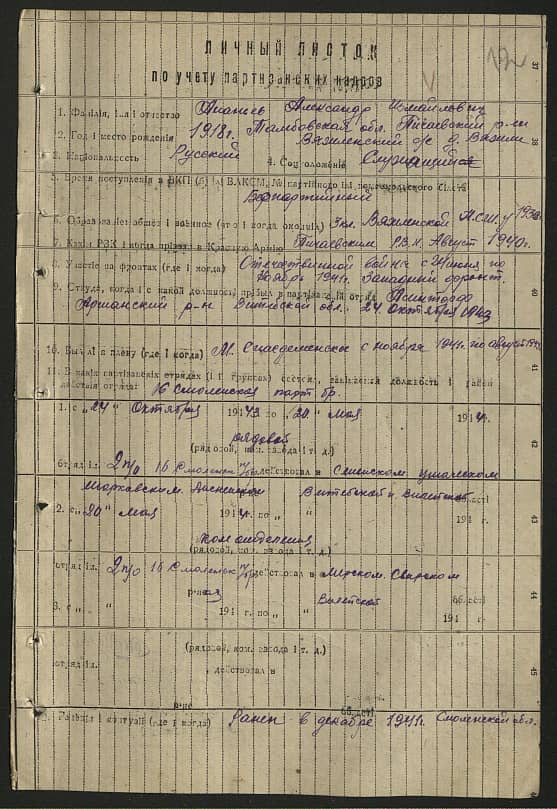 ЛИЧНЫЙ ЛИСТОК
по учету партизанских кадров
1. Фамилия, имя и отчество Ананьев Александр Измайлович
2. Год и место рождения 1918г. Тамбовская обл. Пичаевский р-он
Вяжлинский с/с д. Вяжли
3. Национальность Русский 4. Соцположение Служащий
5. Время поступления в ВКП(б) или ВЛКСМ, № партийного или комсомольского билета
Беспартийный
6. Образование: общее и военное (что и когда окончил) 3кл. Вяжлинской Н.С.Ш. у 193
7. Каким РВК и когда призван в Красную Армию Пичаевским Р.В.К. Август 1940г.
8. Участие на фронтах (где и когда) Отечественной война с Июня по
Ноябрь 1941г. Западный фронт.
9. Откуда, когда и с какой должности прибыл в партизанский отряд
р-н Витебской обл. 24 октября 1943
10. Был ли в плену (где и когда) с ноября 1941г. по август 1943
11. В каких партизанских отрядах (и группах) состоял, занимаемая должность и район
действия отряда: 16 Смоленская парт бр.
1. с „24“ Октября 1943 по „20“ мая 194 г.
рядовой
(рядовой, ком. взвода и т. д.)
отряд им. 2 п/о 16 Смоленск действовал в
Витебской и Вилейской области
2. с „20“ мая 194 г. по „ “ 194 г.
ком отделения
(рядовой, ком. взвода и т. д.)
отряд им. 2 п/о 16 Смоленск действовал в Мирском. Свирском
р-нах Вилейской области
3. с „ “ 194 г. по „ “ 194 г.
(рядовой, ком. взвода и т. д.)
отряд им. действовал в
р-не области
Ранения и контузии (где и когда) Ранен в декабре 1941г. Смоленской обл.
37
39
40
41
42
43
44
45